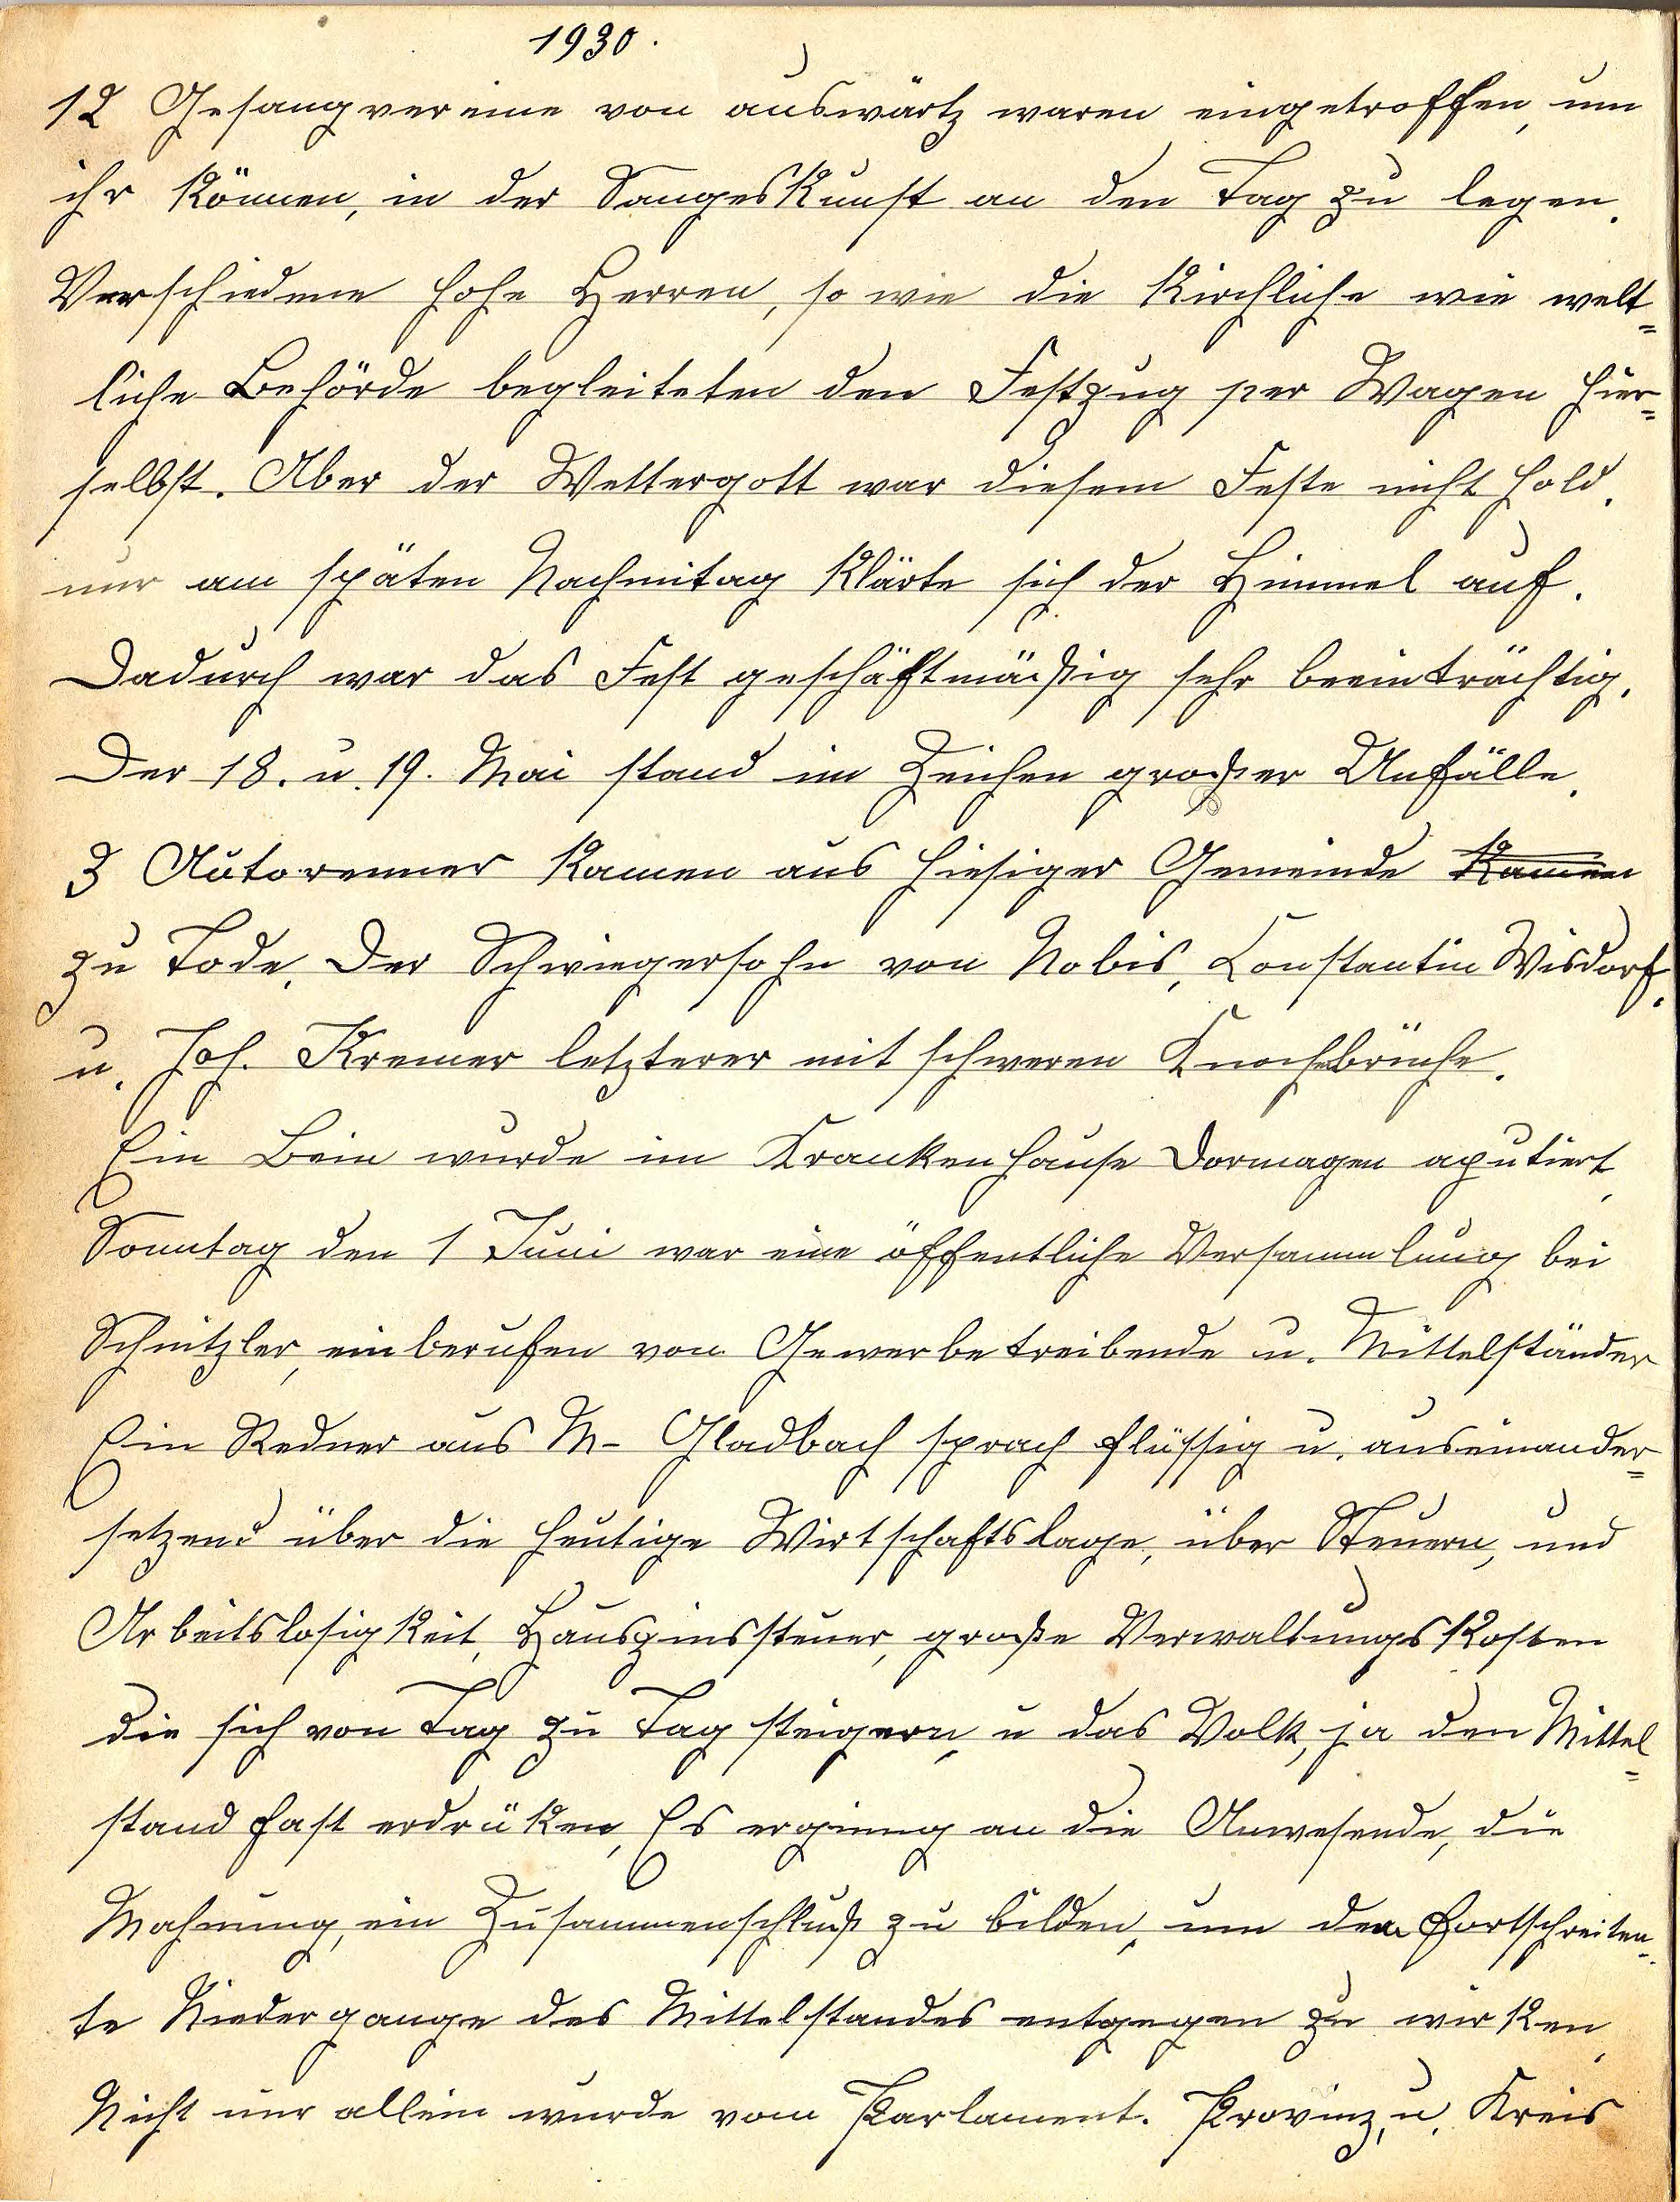 1930.
12 Gesangvereine von auswärtz waren eingetroffen, um
ihr Können, in der Sangeskunst an den Tag zu legen.
Verschiedene hohe Herren, so wie die Kirchliche wie welt=
liche Behörde begleiteten den Festzug per Wagen hier=
selbst. Aber der Wettergott war diesem Feste nicht hold.
nur am späten Nachmitag klärte sich der Himmel auf.
Dadurch war das Fest geschäftmäßig sehr beeinträchtig.
Der 18. u. 19. Mai stand im Zeichen großer Unfälle.
3 Autorenner kamen aus hiesiger Gemeinde kamen
zu Tode. Der Schwiegersohn von Nobis, Constantin Wisdorf.
u. Joh. Kremer letzterer mit schweren Knochebrüche.
Ein Bein wurde im Krankenhause Dormagen aputiert.
Sonntag den 1 Juni war eine öffentliche Versammlung bei
Schnitzler, einberufen von Gewerbetreibende u. Mittelständer
Ein Redner aus M- Gladbach sprach flüssig u. auseinander=
setzend über die heutige Wirtschaftslage, über Steuern, und
Arbeitslosigkeit, Hauszinssteuer, große Verwaltungskosten
die sich von Tag zu Tag steigern, u das Volk, ja den Mittel=
stand fast erdrüken, Es erginng an die Anwesende, die
Mahnung, ein Zusammenschluß zu bilden, um dem Fortschreiten=
te Niedergange des Mittelstandes entgegen zu wirken.
Nicht nur allein wurde vom Parlament. Provinz, u. Kreis